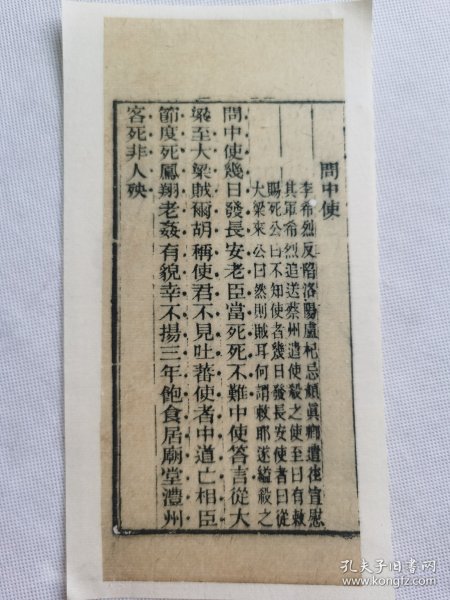 問中使
李希烈反陷洛陽盧杞忌顏眞卿遣往宣慰
其軍希烈追送蔡州遣使殺之使至曰有敕
賜死公曰不知使者幾日發長安使者曰從
大梁來公曰然則賊耳何謂敕耶遂縊殺之
問中使幾日發長安老臣當死死不難中使答言從大
梁至大梁賊爾胡稱使君不見吐蕃使者中道亡相臣
節度死鳳翔老姦有貌幸不揚三年飽食居廟堂澧州
客死非人殃
孔夫子旧书网
www.kongfz.com